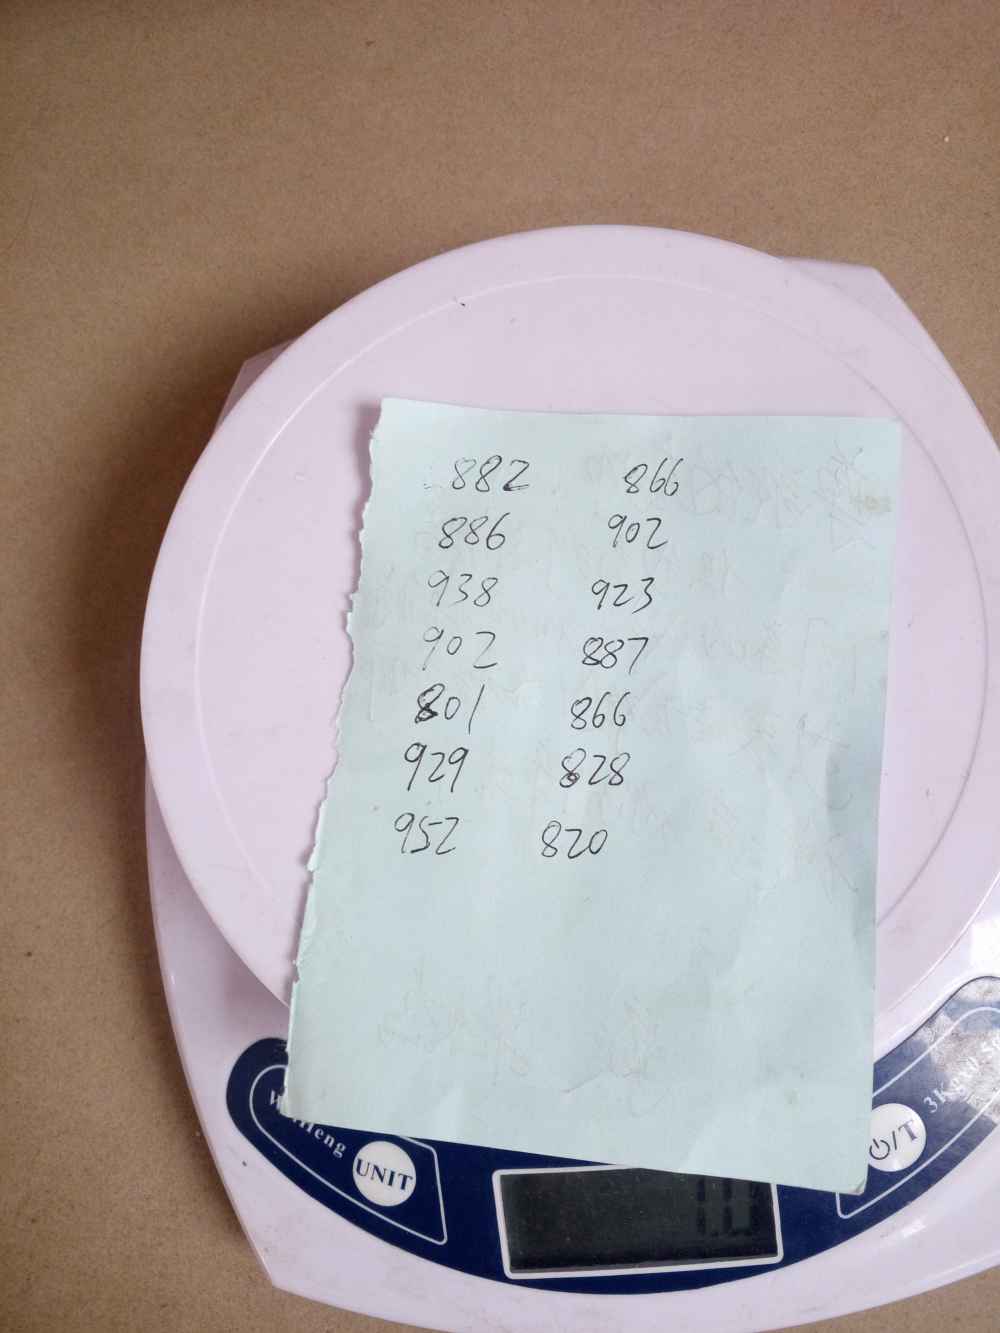 882 866
886 902
938 923
902 887
801 866
929 828
952 820
UNIT
/T